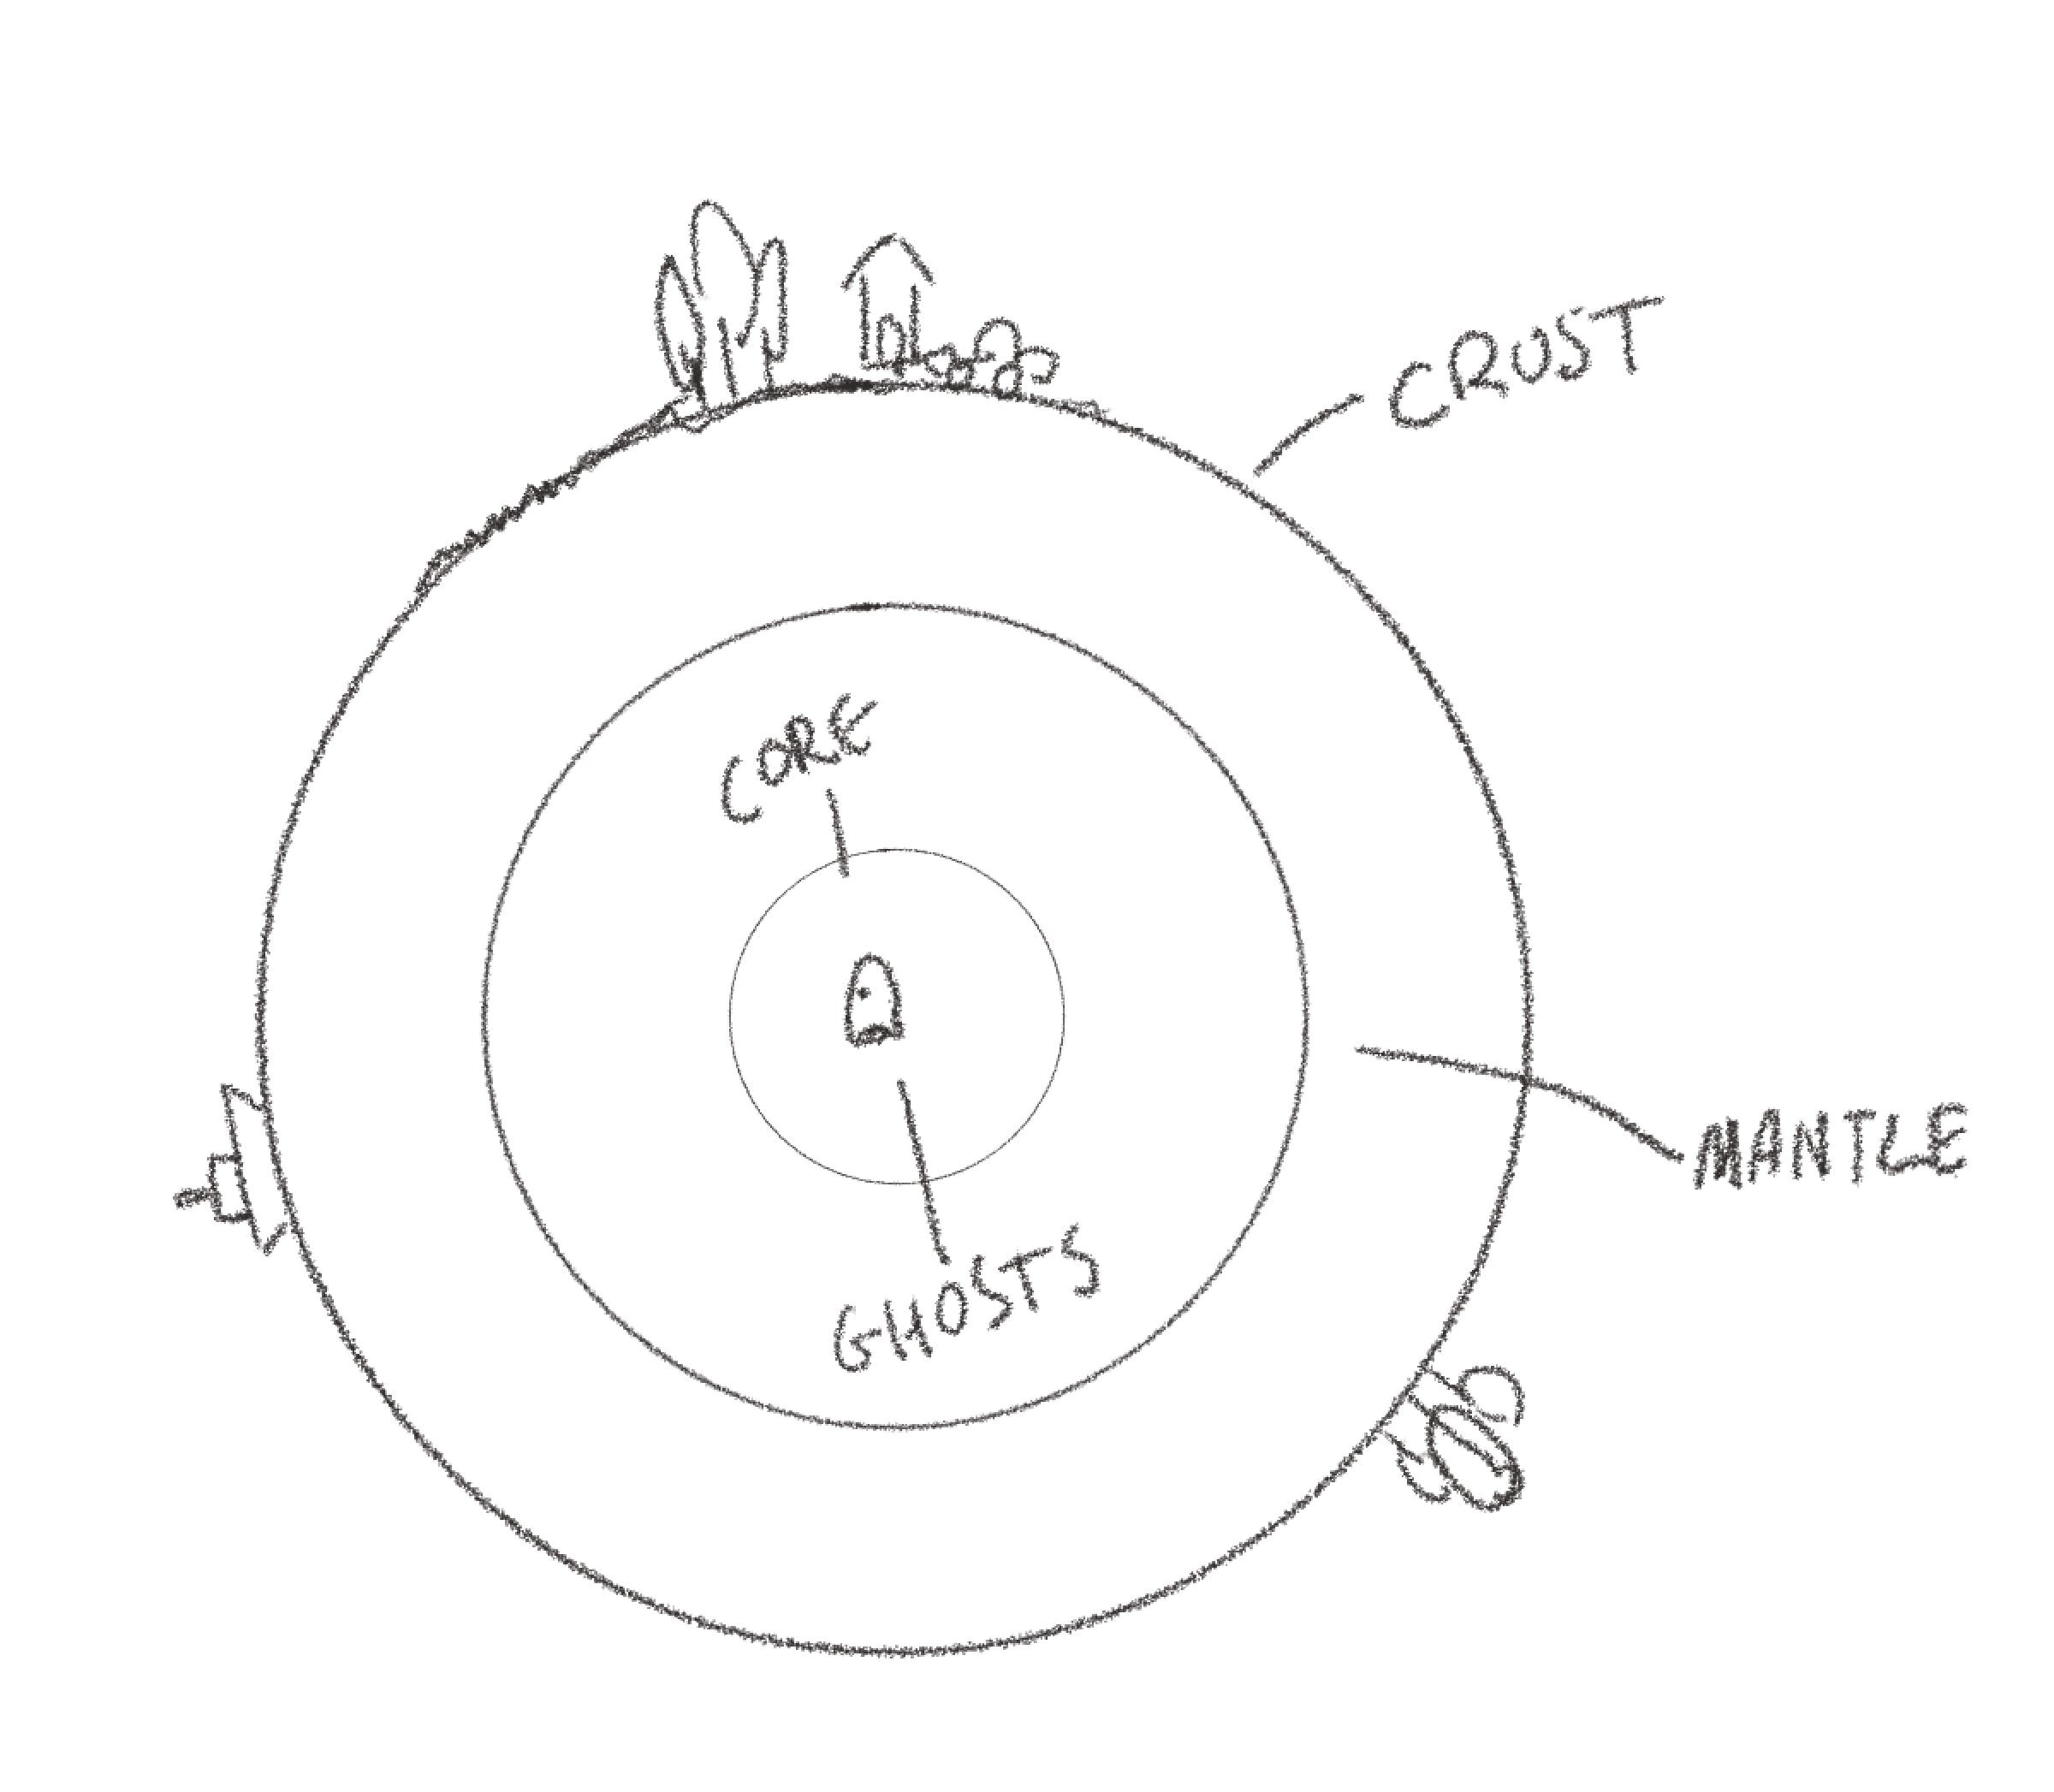 CRUST
CORE
MANTLE
GHOSTS